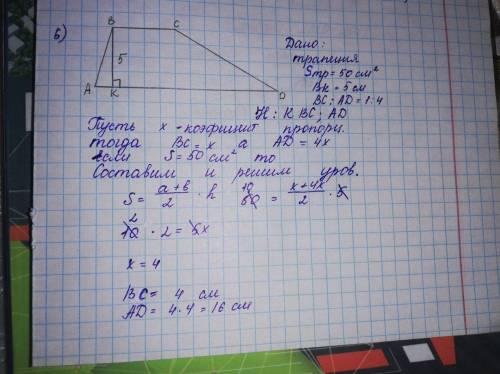 б)
B C
5
A K D
Дано:
трапеция
Sтр = 50 см²
BK = 5 см
BC : AD = 1:4
Н: K BC; AD
Пусть x - коэфицит пропорц.
тогда BC = x а AD = 4x
если S = 50 см² то
Составим и решим уров.
S = a + b / 2 · h 10 50 = x + 4x / 2 · 5
2 10 · 2 = 5x
x = 4
BC = 4 см
AD = 4·4 = 16 см